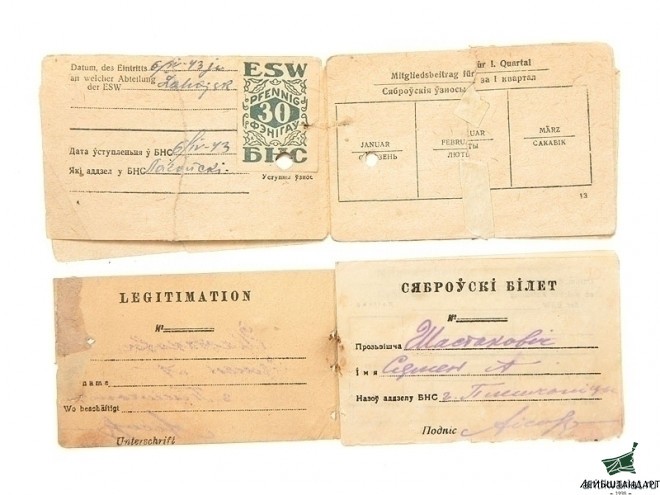 Datum, des Eintritts 6/IV-43
an welcher Abteilung
der ESW Lahojsk
ESW
PFENNIG
30
ФЭНІГАЎ
БНС
Дата ўступленьня ў БНС 6/IV-43
Які аддзел у БНС Лагойскі.
Уступны ўзнос
4
für I. Quartal
Mitgliedsbeitrag für за I квартал
Сяброўскія ўзносы
JANUAR
FEBRUAR
ЛЮТЫ
MÄRZ
САКАВІК
13
LEGITIMATION
№
name
Wo beschäftigt
Unterschrift
СЯБРОЎСКІ БІЛЕТ
№
Прозьвішча Шастаковіч
Імя Сымен А
Назоў аддзелу БНС
Подпіс
ЛЕЙБШТАНДАРТ
1998